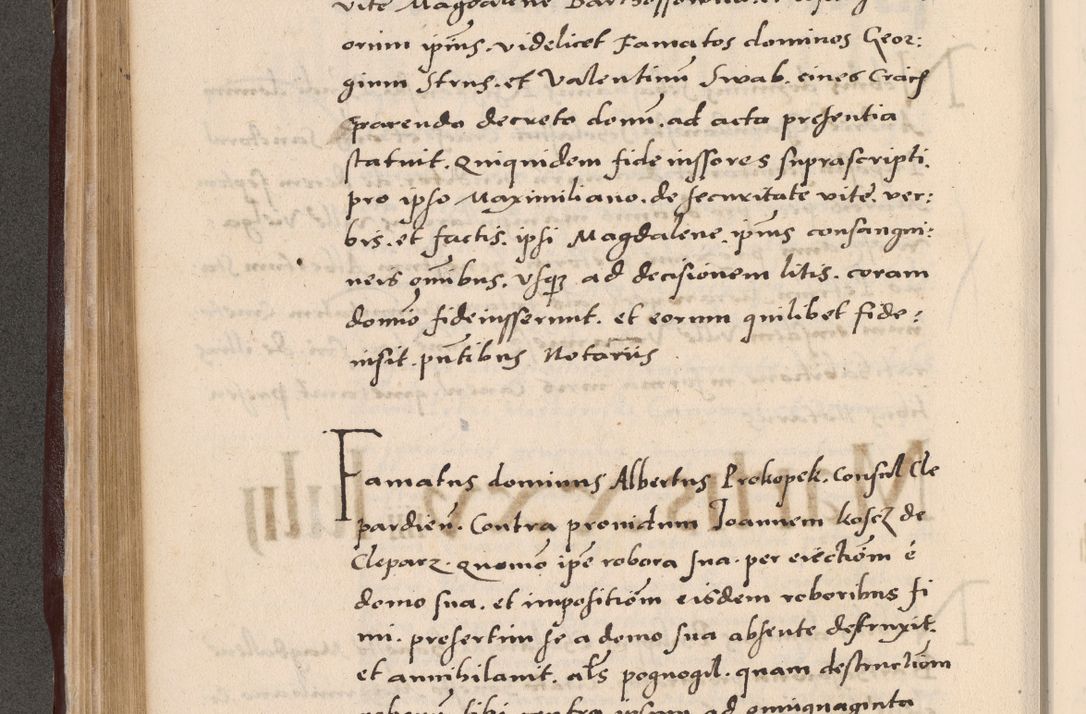 orum ipius. videlicet Famatos dominos Geor:
gium Strus. et Valentinu Swab. cives Crac
parendo decreto domu. ad acta presentia
statuit. Quiquidem fideiussores suprascripti.
pro ipso Maximiliano. de securitate vite. ver:
bis. et factis. ipsi Magdalene. ipius consangui:
neis omibus. Usq3 ad decisionem litis. coram
domio fideiusserunt. et eorum quilibet fide:
iusit. pntibus Notariis
Famatus dominus Albertus Prokopek. Consul Cle
pardien. Contra providum Joannem koscz de
Cleparz. quomo ipe robora sua. per eiectiom e
domo sua. et impositiom eisdem roboribus fi
mi. presertim se a domo sua absente destruxit.
et annihilavit. als pognogil. quam destructiom